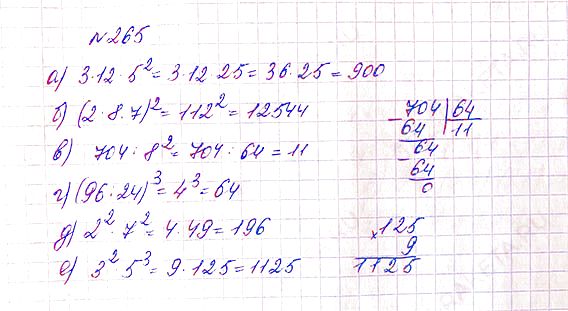 №265
а) 3·12·5²=3·12·25=36·25=900
б) (2·8·7)²=112²=12544
в) 704:8²=704:64=11
г) (96:24)³=4³=64
д) 2²·7²=4·49=196
е) 3²·5³=9·125=1125
704 64
64 11
64
64
0
125
×9
1125